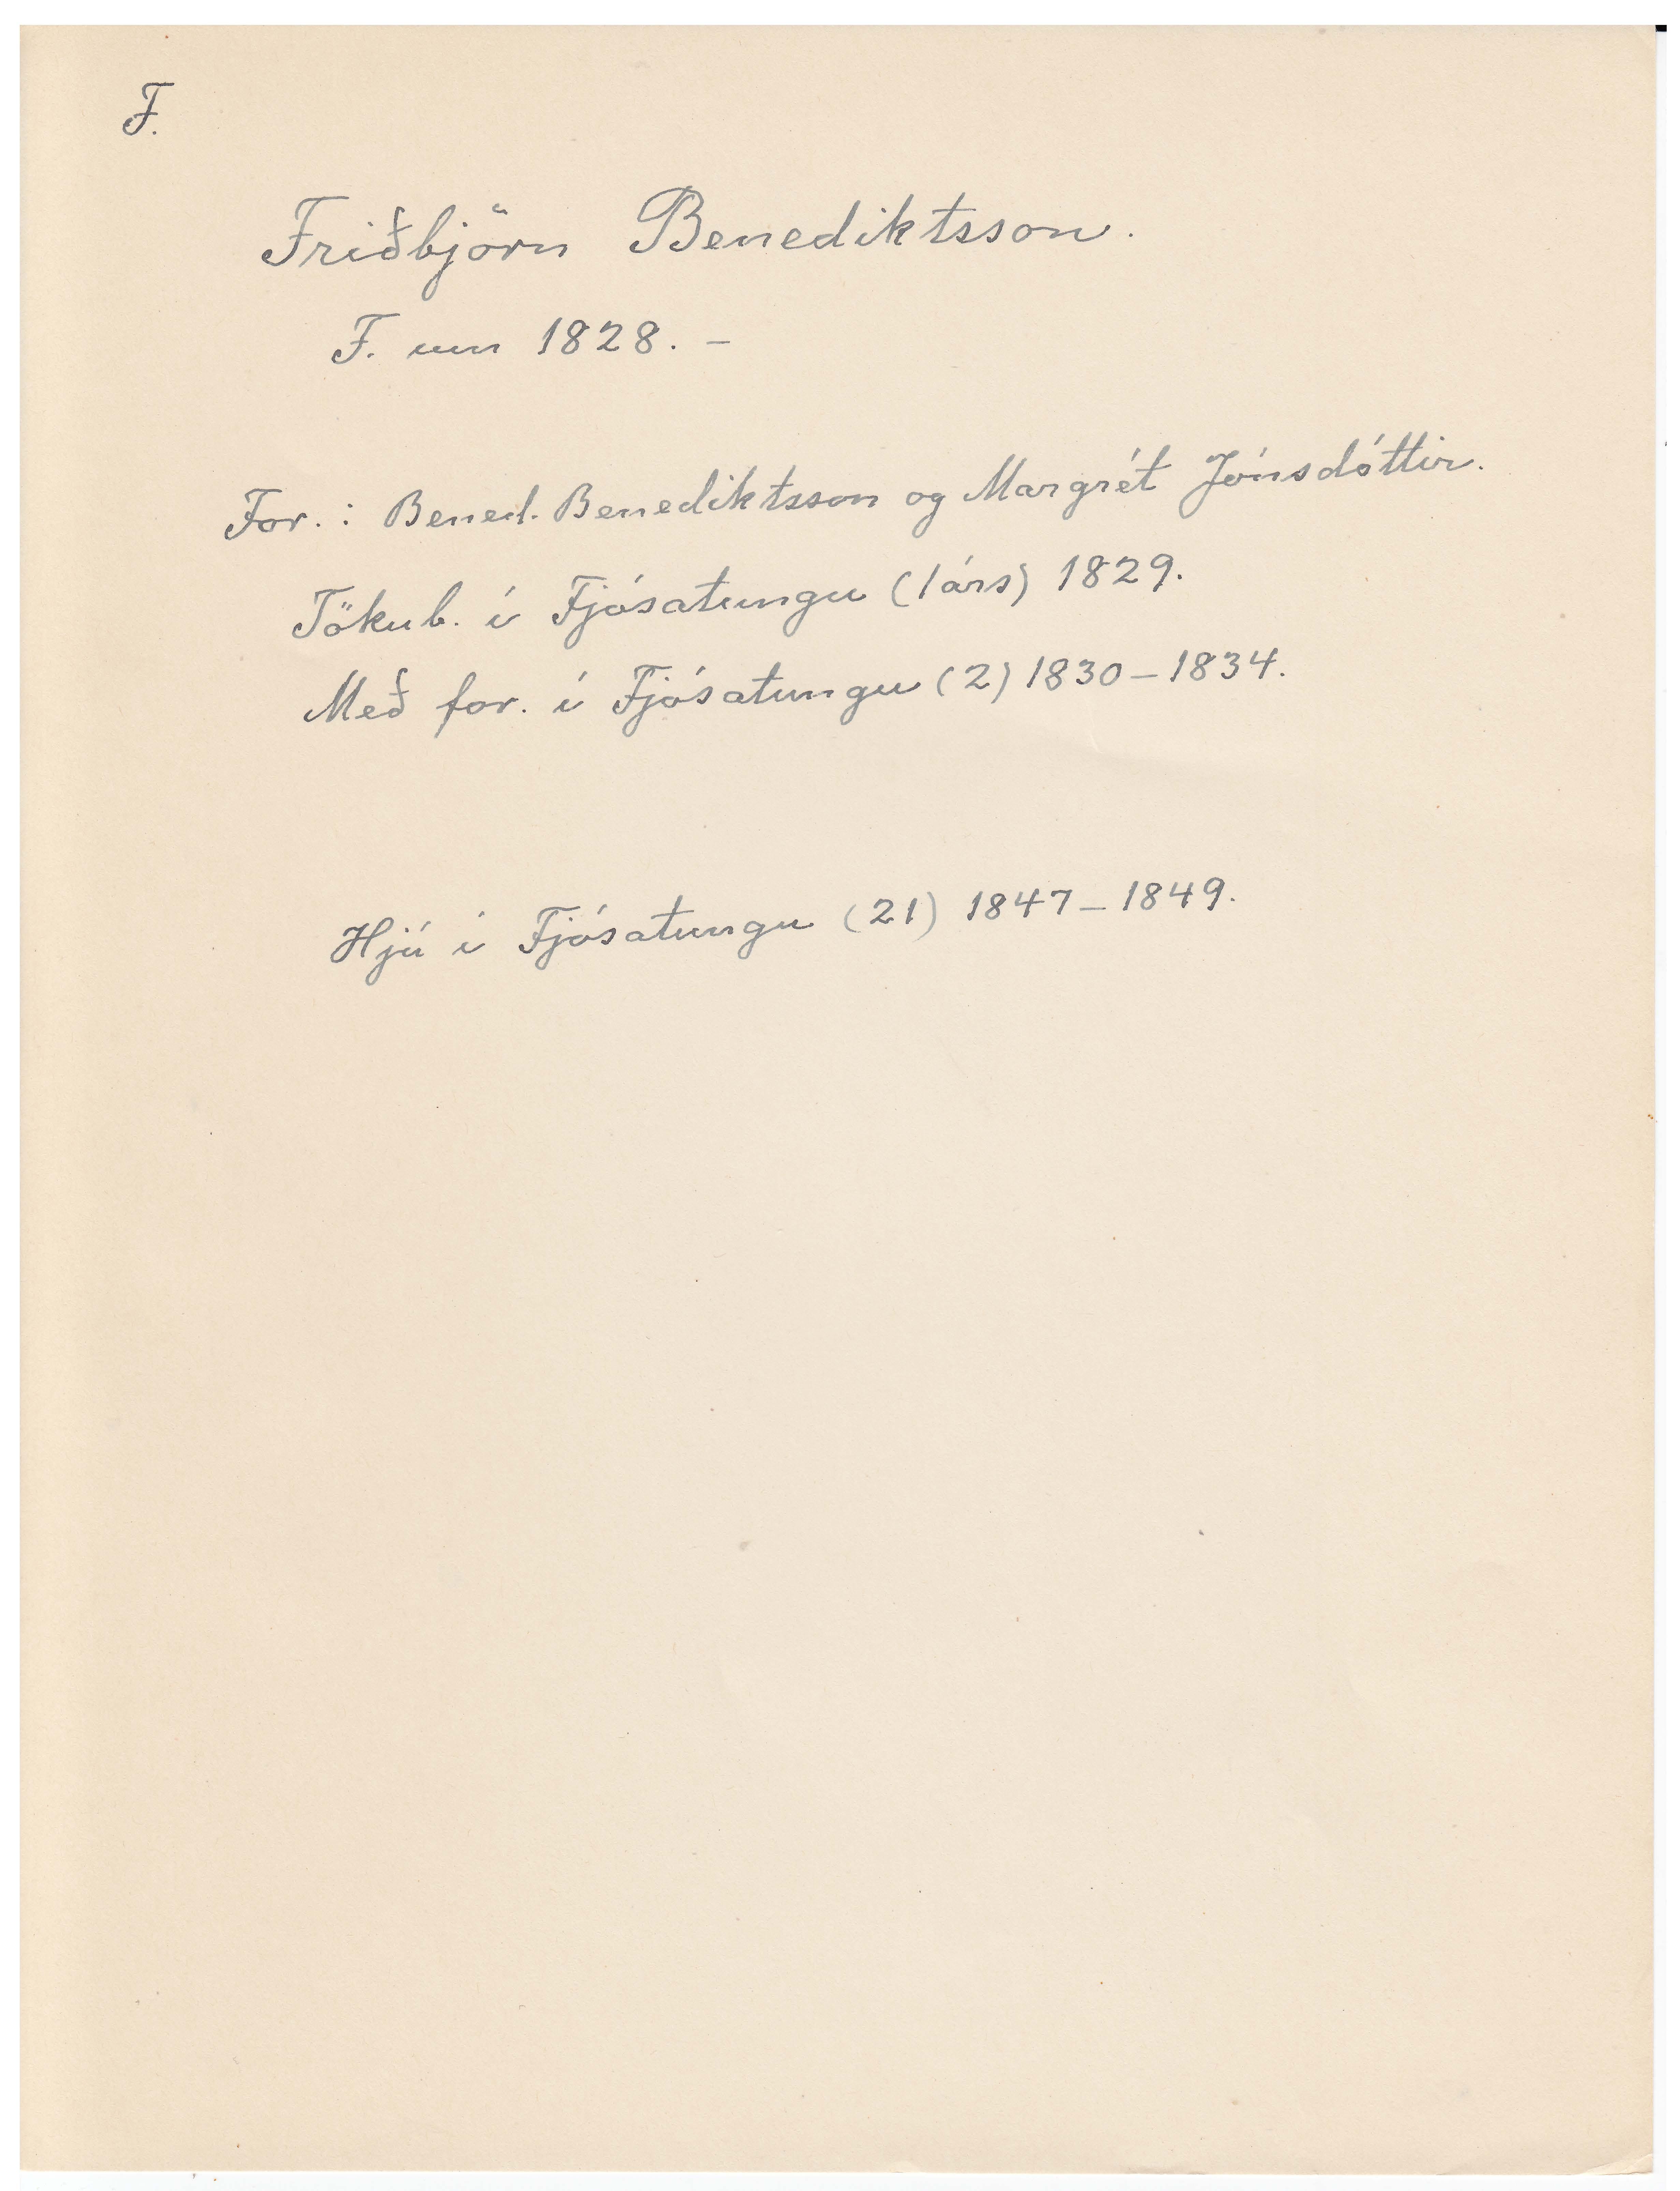 F.
Friðbjörn Benediktsson.
F. um 1828. –
For. : Bened. Benediktsson og Margrét Jónsdóttir.
Tökub. í Fjósatungu (1árs) 1829.
Með for. í Fjósatungu (2) 1830–1834.
Hjú í Fjósatungu (21) 1847–1849.